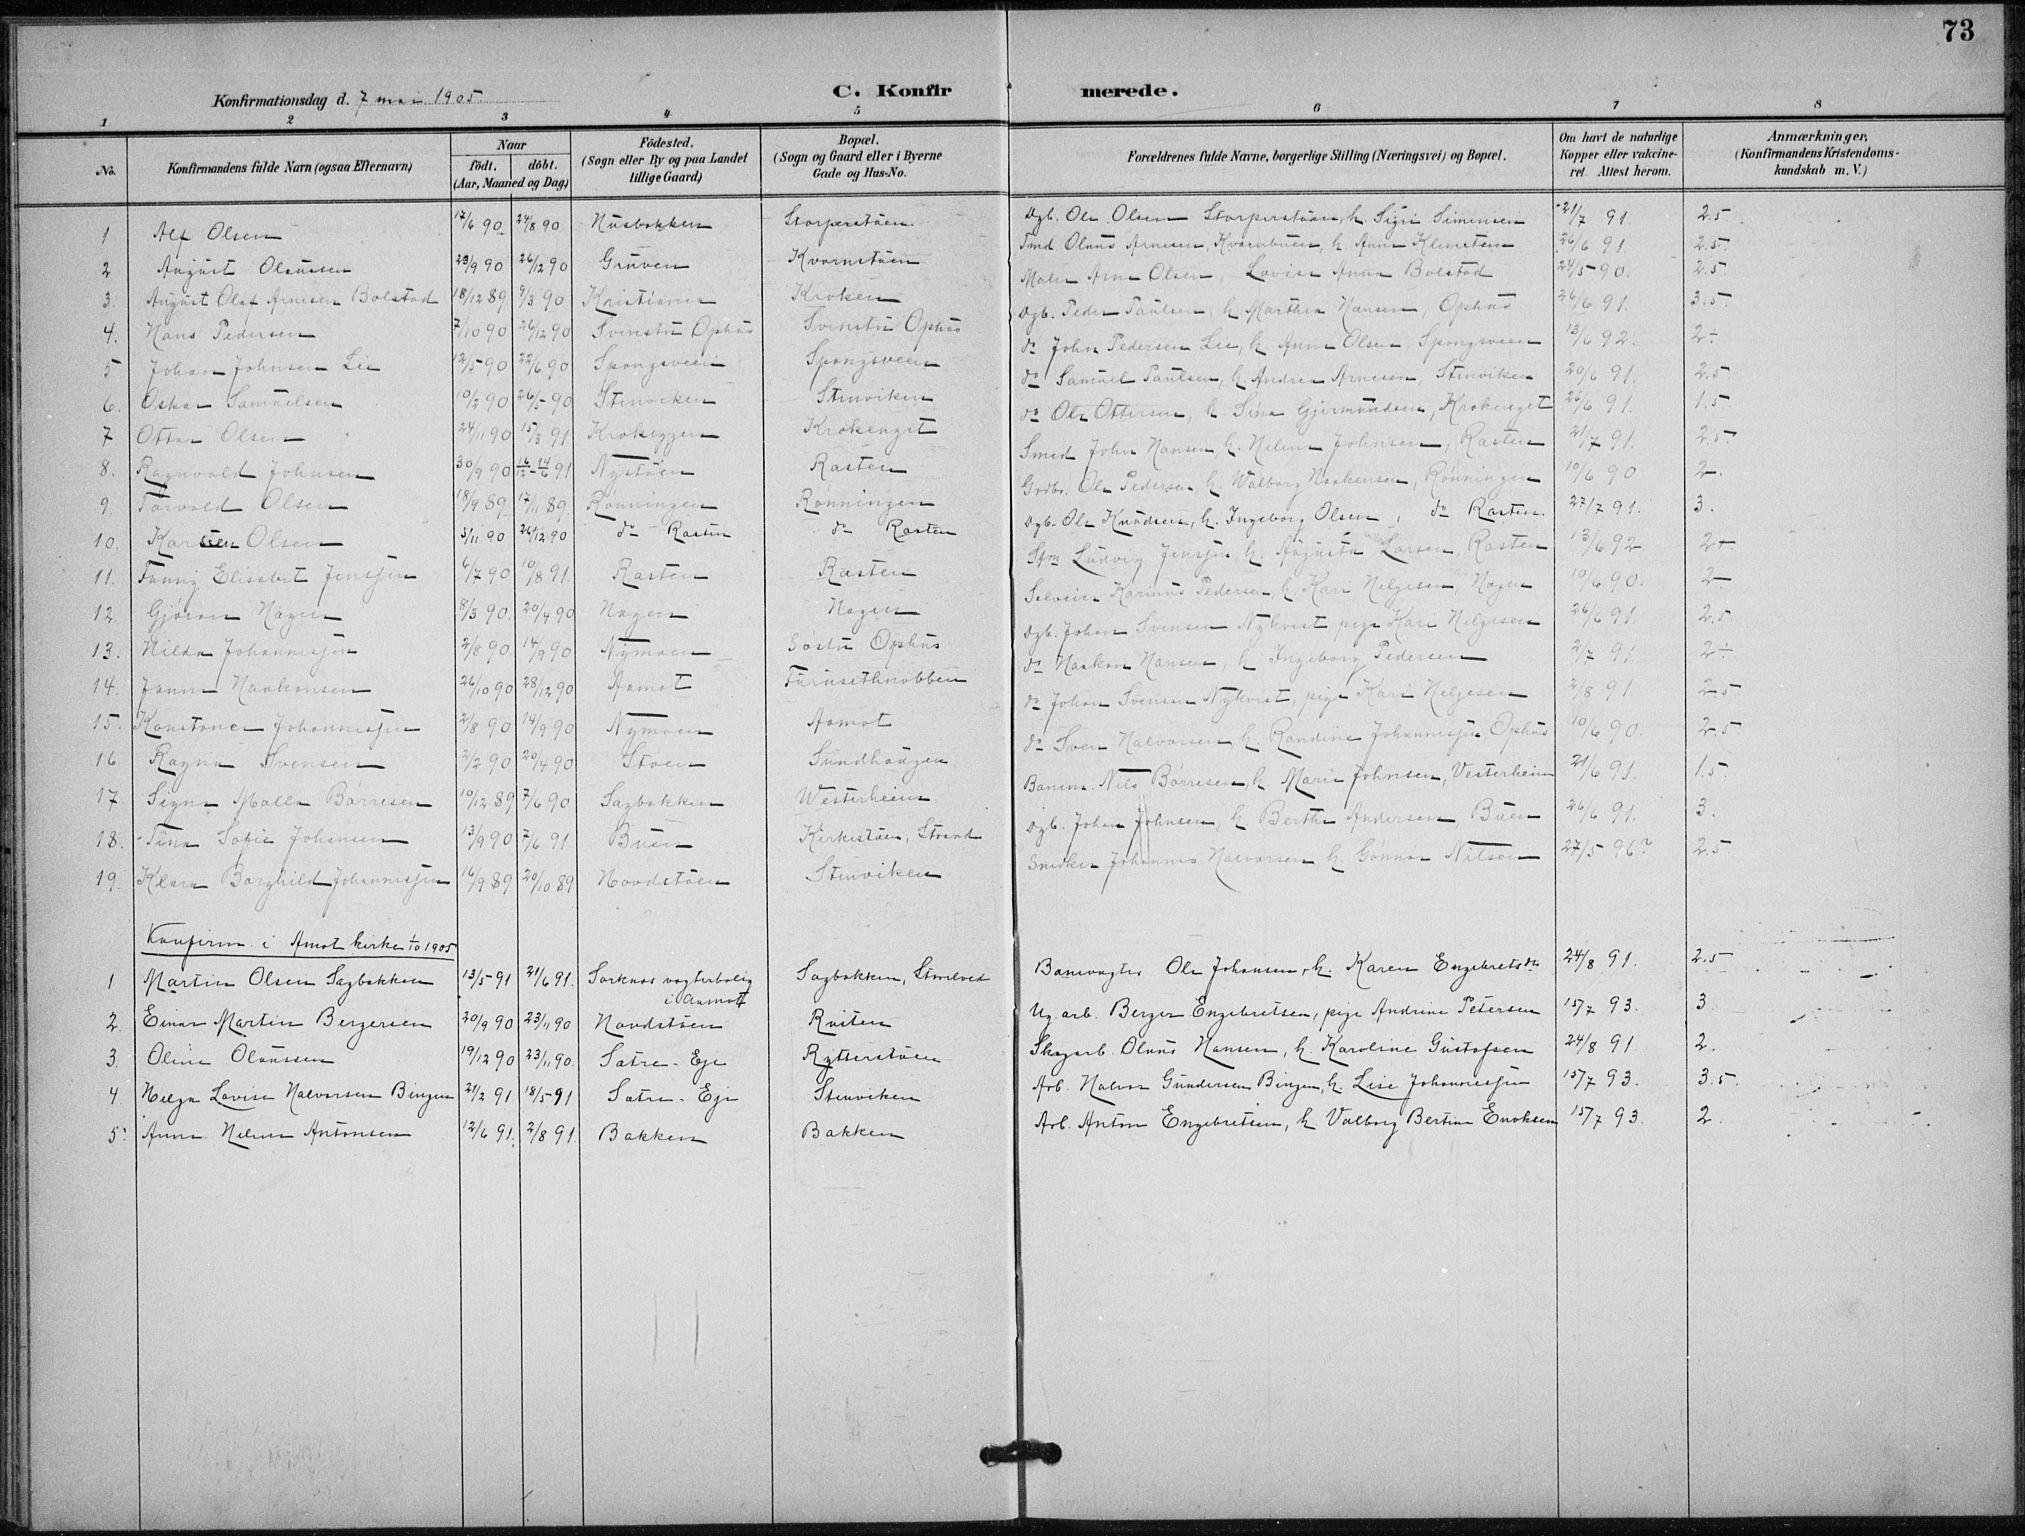 73
Konfirmationsdag d. 7 mai 1905.
C. Konfirmerede.
1 2 3 4 5 6 7 8
No.
Konfirmandens fulde Navn (ogsaa Efternavn)
Naar
født. døbt.
(Aar, Maaned og Dag)
Fødested.
(Sogn eller By og paa Landet
tillige Gaard)
Bopæl.
(Sogn og Gaard eller i Byerne
Gade og Hus-No.
Forældrenes fulde Navne, borgerlige Stilling (Næringsvei) og Bopæl.
Om havt de naturlige
Kopper eller vakcine-
ret Attest herom.
Anmærkninger,
(Konfirmandens Kristendoms-
kundskab m. V.)
1 Alf Olsen 17/6 90. 24/8 90 Husbakken Storperstøen. Dgb. Ole Olsen Storperstøen, h. Sigri Simensen 21/7 91. 2.5
2 August Olaussen 23/9 90 26/12 90 Gruven Kvernstøen Tmd Olaus Arnesen, h. Anne Klemetsen 26/6 91. 2.5.
3. August Olaf Arnesen Bolstad 18/12 89. 9/3 90 Kristiania Kroken Maler Arne Olsen, Lovise Anna Bolstad 24/5 90. 2.5
4. Hans Pedersen 7/10 90 26/12 90 Svenstu Ophus Svenstu Ophus Dgb. Peder Paulsen, h Marthea Hansen, Ophus 26/6 91. 3.5
5 Johan Johnsen Lie 12/5 90 22/6 90 Spongsveen Spongsveen do John Pedersen Lie, h Anne Olsen, Spongsveen 13/6 92. 2÷
6. Oskar Samuelsen 10/2 90 26/5 90 Stenviken Stenviken do Samuel Paulsen, h Andrea Arnesen, Stenviken 20/6 91. 2.5
7 Ottar Olsen 24/11 90 15/3 91 Krokeggen Krokenget do Ole Ottersen, h Sina Gjermundsen, Krokenget 26/6 91. 1.5
8. Ragnvald Johnsen 30/9 90 16/12 - 14/6 91 Nystøen Rasten Smed John Hansen, h. Helene Johnsen, Rasten 21/7 91. 2.5
9. Torvald Olsen 18/9 89. 17/11 89. Rønningen Rønningen Grdbr. Ole Pedersen, h. Walborg Haakensen, Rønningen 10/6 90 2-.
10. Karsten Olsen 5/11 90 26/12 90 do Rasten do Rasten Dgb. Ole Knudsen, h. Ingeborg Olsen, do Rasten. 27/7 91. 3.
11. Fanny Elisabet Jensjen 6/7 90 10/8 91. Rasten Rasten Ludvig Jensjen, h. Augusta Larsen, Rasten 13/6 92 2÷
12 Gjøran Hagen 8/3 90. 20/4 90 Hagen Hagen Selveier Karinus Pedersen, h Kari Helgesen, Hagen 10/6 90. 2-
13. Hilda Johannesjen 2/8 90 14/9 90 Nymoen Søstu Ophus Dgb. Johan Svensen Nykvist pige Kari Helgesen 26/6 91. 2.5
14. Janna Haakonsen 26/10 90 28/12 90 Aamot Furusethnobben do Haakon Hansen, h Ingeborg Pedersen 2/7 91 2÷
15. Konstance Johannesjen 2/8 90 14/9 90 Nymoen Aamot do Johan Svensen Nykvist, pige Kari Helgesen 2/8 91. 2.5
16 Ragna Svensen 2/2 90 20/4 90 Støen Sundhaugen do Sven Halvorsen, h Randine Johannesjen Ophus 10/6 90. 2.5
17. Signe Malla Børresen 10/12 89 7/6 90 Sagbakken Westerheim Banem. Nils Børresen, h Marie Johnsen, Vesterheim 21/6 91. 1.5.
18. Tina Sofie Johansen 13/9 90 7/6 91. Buen Kirkestøen, Strand Dgb. Johan Johnsen, h. Berthe Andersen, Buen 26/6 91. 3.
19. Klara Borghild Johannesjen 16/9 89 20/10 89 Hovdstøen Stenviken Snedker Johannes Halvorsen h. Gunnor Nilsen 27/5 96? 2.5.
Konfirm. i Amot kirke 1/10 1905.
1 Martin Olsen Sagbakken 13/5 91 21/6 91. Sorknes vogterbolig Sagbakken, Stenelved Banevogter Ole Johansen, h. Karen Engebretsdn 24/8 91. 2.5
i Aamot
2. Einar Martin Bergersen 20/9 90 23/11 90 Hovdstøen Rviten Ug. arb. Berger Engebretsen, pige Andrine Petersen 15/7 93. 3
3. Oline Olaussen 19/12 90 23/11 90. Sætre-Eje Rytterstøen Skogarb. Olaus Hansen, h. Karoline Gustafsen 24/8 91 2.
4. Helga Lovise Halvorsen Bingen 21/2 91 18/5 91 Sætre-Eje Stenviken Arb. Halvor Gundersen Bingen, h. Lise Johannesjen 15/7 93. 3.5
5. Anna Helene Antonsen 12/6 91. 2/8 91. Bakken Bakken Arb. Anton Engebretsen, h Valborg Bertine Enoksen 15/7 93. 2